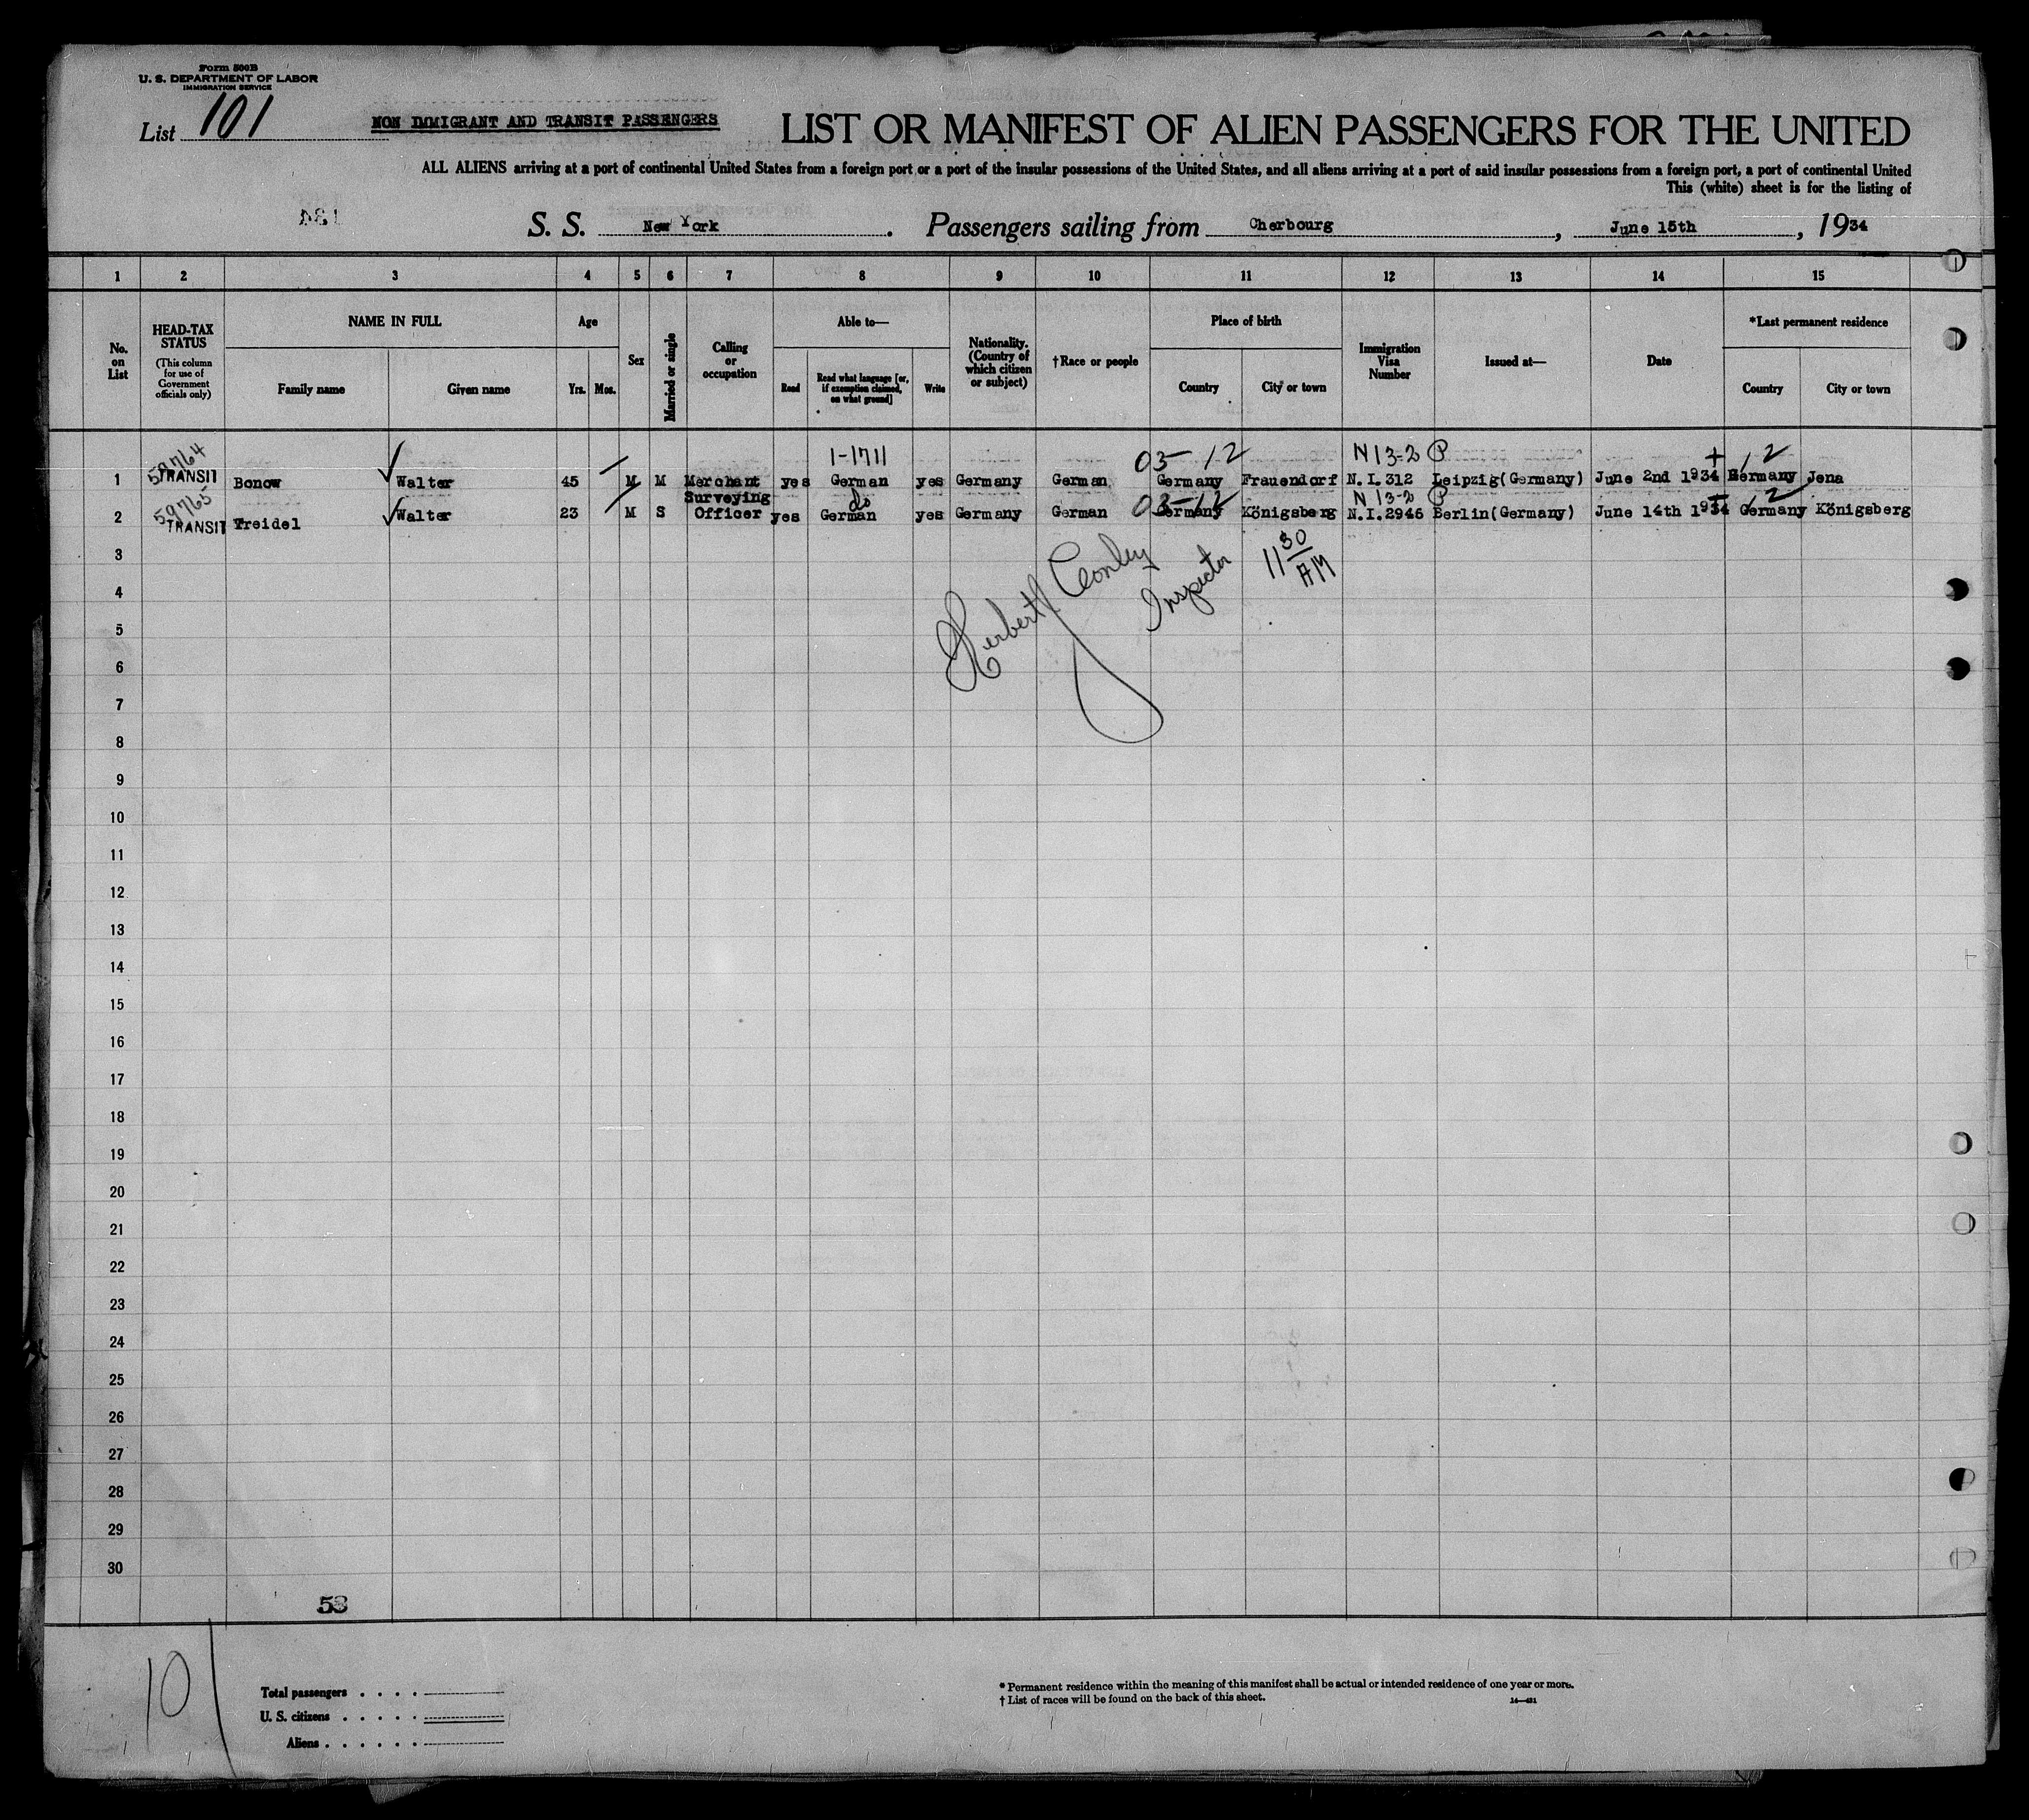 Form 500B
U. S. DEPARTMENT OF LABOR
IMMIGRATION SERVICE
List 101
NON IMMIGRANT AND TRANSIT PASSENGERS
LIST OR MANIFEST OF ALIEN PASSENGERS FOR THE UNITED
ALL ALIENS arriving at a port of continental United States from a foreign port or a port of the insular possessions of the United States, and all aliens arriving at a port of said insular possessions from a foreign port, a port of continental United
This (white) sheet is for the listing of
S. S. New York. Passengers sailing from Cherbourg, June 15th, 1934
1 2 3 4 5 6 7 8 9 10 11 12 13 14 15
No. on List
HEAD-TAX STATUS (This column for use of Government officials only)
NAME IN FULL
Family name
Given name
Age
Yrs. Mos.
Sex
Married or single
Calling or occupation
Able to—
Read
Read what language [or, if exemption claimed, on what ground]
Write
Nationality. (Country of which citizen or subject)
†Race or people
Place of birth
Country
City or town
Immigration Visa Number
Issued at—
Date
*Last permanent residence
Country
City or town
59764 1-1711 05-12 N13-2 P + 12
1 TRANSIT Bonow Walter 45 M M Merchant yes German yes Germany German Germany Frauendorf N.I.312 Leipzig(Germany) June 2nd 1934 Germany Jena
59765 do 03-12 N 13-2 P 12
2 TRANSIT Treidel Walter 23 M S Surveying Officer yes German yes Germany German Germany Königsberg N.I.2946 Berlin(Germany) June 14th 1934 Germany Königsberg
Herbert J. Conley Inspector 11 30 AM
3
4
5
6
7
8
9
10
11
12
13
14
15
16
17
18
19
20
21
22
23
24
25
26
27
28
29
30
53
101
Total passengers . . . .
U. S. citizens . . . . .
Aliens . . . . . .
* Permanent residence within the meaning of this manifest shall be actual or intended residence of one year or more.
† List of races will be found on the back of this sheet.
14—431